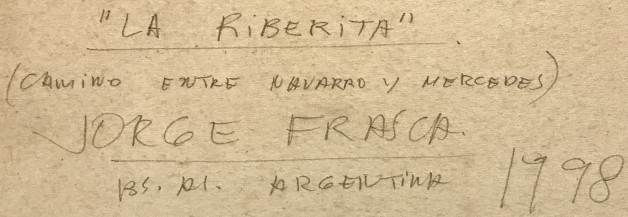 "LA RIBERITA"
(CAMINO ENTRE NAVARRO Y MERCEDES)
JORGE FRASCA.
BS. AS. ARGENTINA 1998